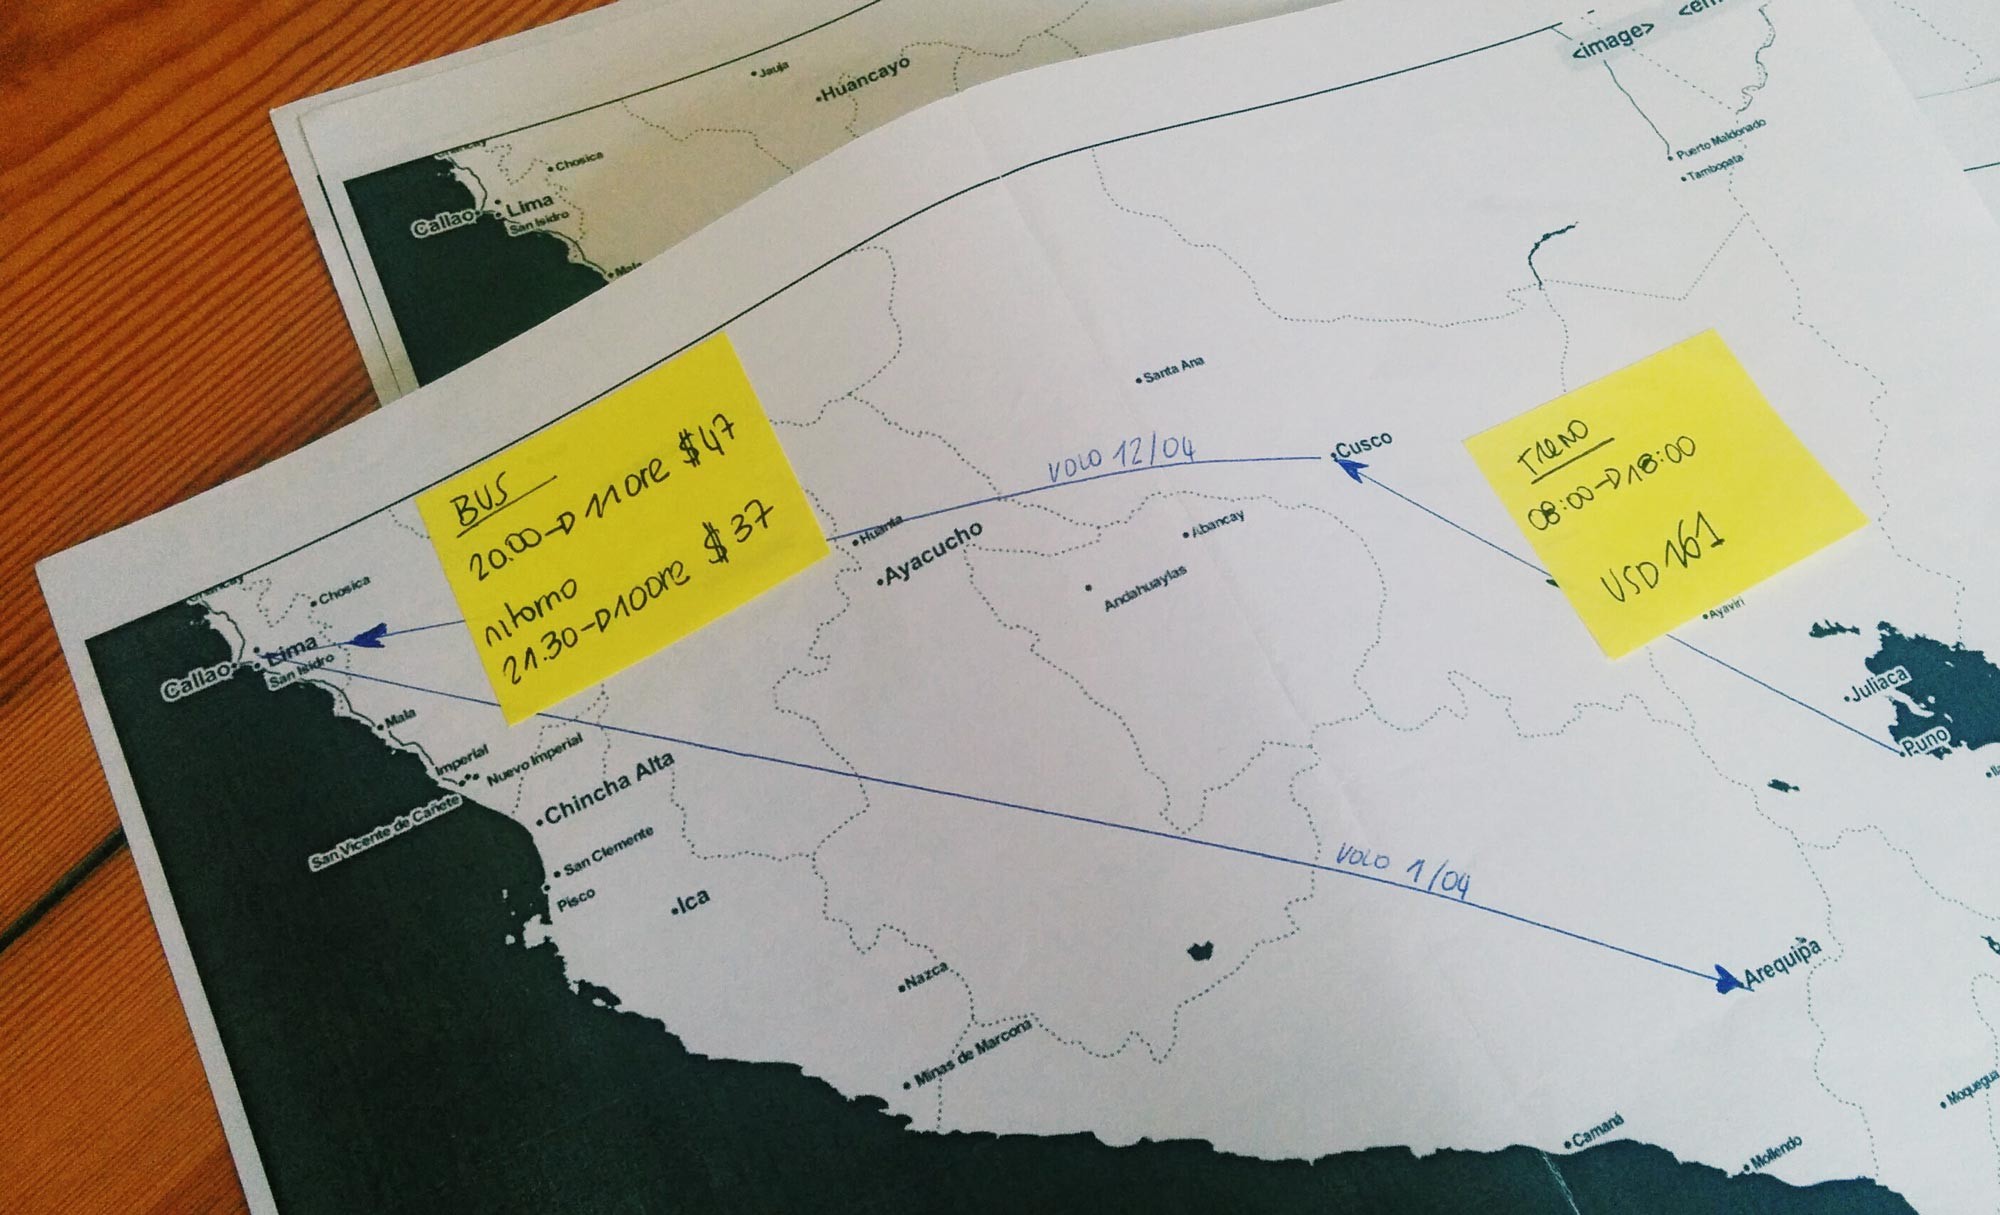 <image>
Jauja
Huancayo
Chosica
Callao
Lima
San Isidro
Puerto Maldonado
Tambopata
Santa Ana
VOLO 12/04
Cusco
TRENO
08:00→18:00
USD 161
BUS
20.00→11 ore $47
ritorno
21.30→10 ore $37
Huanta
Ayacucho
Abancay
Andahuaylas
Ayaviri
Chosica
Lima
Callao
San Isidro
Juliaca
Puno
Mala
Imperial
Nuevo Imperial
San Vicente de Cañete
Chincha Alta
San Clemente
Pisco
Ica
VOLO 1/04
Nazca
Arequipa
Minas de Marcona
Camaná
Mollendo
Moquegua